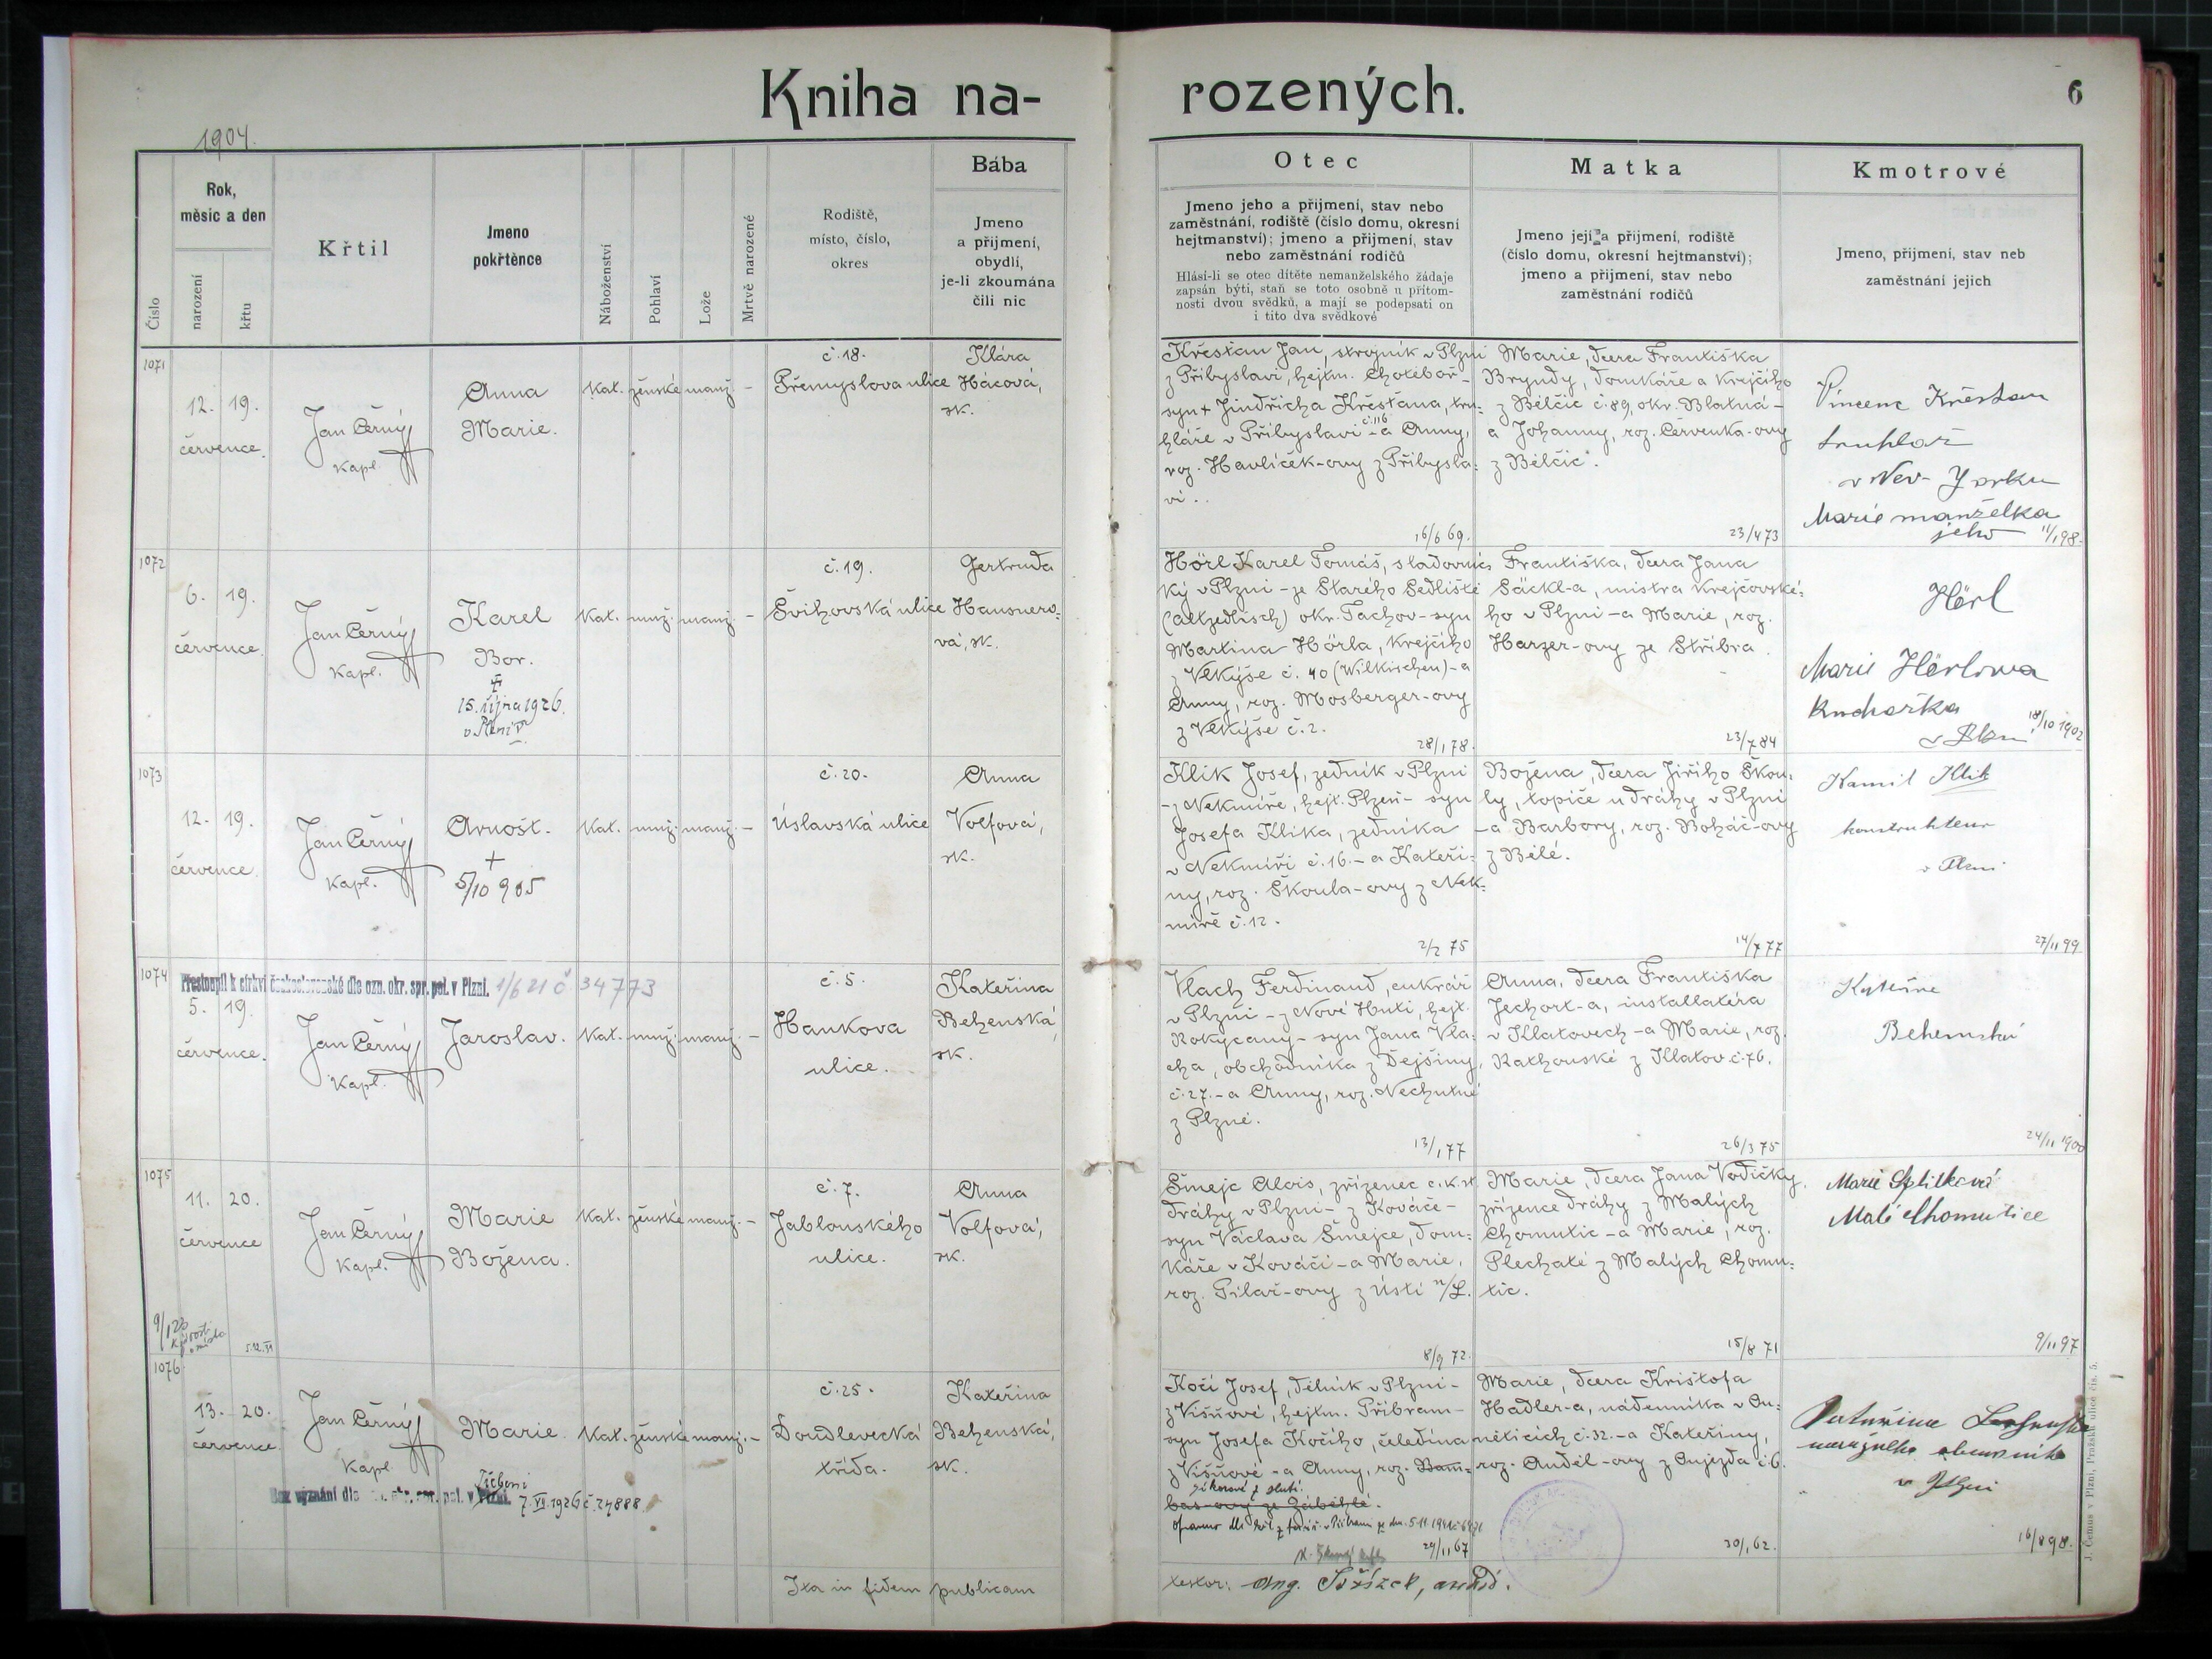 Kniha na-
rozených.
6
1904.
Číslo
Rok,
měsíc a den
narození
křtu
Křtil
Jmeno
pokřtěnce
Náboženství
Pohlaví
Lože
Mrtvě narozené
Rodiště,
místo, číslo,
okres
Bába
Jmeno
a přijmení,
obydlí,
je-li zkoumána
čili nic
Otec
Jmeno jeho a přijmení, stav nebo
zaměstnání, rodiště (číslo domu, okresní
hejtmanství); jmeno a přijmení, stav
nebo zaměstnání rodičů
Hlásí-li se otec dítěte nemanželského žádaje
zapsán býti, staň se toto osobně u přítom-
nosti dvou svědků, a mají se podepsati on
i tito dva svědkové
Matka
Jmeno její a přijmení, rodiště
(číslo domu, okresní hejtmanství);
jmeno a přijmení, stav nebo
zaměstnání rodičů
Kmotrové
Jmeno, přijmení, stav neb
zaměstnání jejich
1071
12. 19.
července.
Jan Černý
kapl.
Anna
Marie.
kat. ženské manž. -
č. 18.
Přemyslova ulice
Klára
Hácová,
zk.
Křesťan Jan, strojník v Plzni
z Přibyslavi, hejtm. Chotěboř-
syn + Jindřicha Křesťana, tru-
hláře v Přibyslavi č. 116 - a Anny,
roz. Havlíček-ovy z Přibysla-
vi.
16/6 69.
Marie, dcera Františka
Bryndy, domkáře a krejčího
z Bělčic č. 89, okr. Blatná -
a Johanny, roz. Červenka-ovy
z Bělčic.
23/4 73
Vincenc Křesťan
truhlář
v Nev-Yorku
Marie manželka
jeho 11/1 98.
1072
6. 19.
července.
Jan Černý
kapl.
Karel
Bor.
15. října 1926.
v Plzni
kat. muž. manž. -
č. 19.
Švihovská ulice
Gertruda
Hausnero-
vá, zk.
Hörl Karel Tomáš, sladovnic-
ký v Plzni - ze Starého Sedliště
(Altzedlisch) okr. Tachov - syn
Martina Hörla, krejčího
z Vlkýše č. 40 (Wilkischen) - a
Anny, roz. Mosberger-ovy
z Vlkýše č. 2.
28/1 78.
Františka, dcera Jana
Säckl-a, mistra krejčovské-
ho v Plzni - a Marie, roz.
Harzer-ovy ze Stříbra.
23/7 84
Hörl
Marie Hörlowa
kuchařka
18/10 1902
1073
12. 19.
července.
Jan Černý
kapl.
Arnošt.
+
5/10 905
kat. muž. manž. -
č. 20.
Úslavská ulice
Anna
Volfová,
zk.
Klik Josef, zedník v Plzni
- z Nekmíře, hejt. Plzeň - syn
Josefa Klika, zedníka
v Nekmíři č. 16. - a Kateři-
ny, roz. Škoula-ovy z Nek-
míře č. 12.
2/2 75
Božena, dcera Jiřího Škou-
ly, topiče u dráhy v Plzni
- a Barbory, roz. Boháč-ovy
z Bělé.
14/7 77
Kamil Klik
konstrukteur
v Plzni
27/11 99
1074
Přestoupil k církvi československé dle ozn. okr. spr. pol. v Plzni. 1/6 21 č 34773
5. 19.
července.
Jan Černý
kapl.
Jaroslav.
kat. muž. manž. -
č. 5.
Hankova
ulice.
Kateřina
Behenská,
zk.
Vlach Ferdinand, cukrář
v Plzni - z Nové Huti, hejt.
Rokycany - syn Jana Vla-
cha, obchodníka z Dejšiny,
č. 27. - a Anny, roz. Nechutné
z Plzně.
13/1 77
Anna, dcera Františka
Jechort-a, installatéra
v Klatovech - a Marie, roz.
Rathouské z Klatov č. 76.
26/3 75
Kateřine
Behenská
24/11 1900
1075
11. 20.
července
Jan Černý
kapl.
Marie
Božena.
kat. ženské manž. -
č. 7.
Jablonského
ulice.
Anna
Volfová,
zk.
Šmejc Alois, zřízenec c. k. st.
dráhy v Plzni - z Kováče -
syn Václava Šmejce, dom-
káře v Kováči - a Marie,
roz. Pilař-ovy z Ústí n/L.
8/9 72.
Marie, dcera Jana Vodičky,
zřízence dráhy z Malých
Chomutic - a Marie, roz.
Plechaté z Malých Chomu-
tic.
15/8 71
Marie
Malé Chomutice
9/11 97
9/1 23
5.12.
1076
13. 20.
července.
Jan Černý
kapl.
Marie
kat. ženské manž. -
č. 25.
Doudlevecká
třída.
Kateřina
Behenská,
zk.
Bez vyznání dle spr. pol. v Plzni.
7. VII. 1926 č. 24888.
Kočí Josef, dělník v Plzni -
z Višňové, hejtm. Příbram -
syn Josefa Kočího, čeledína
z Višňové - a Anny, roz. Bam-
bas-ovy ze Záběhlé.
29/11 67
Marie, dcera Krištofa
Hadler-a, nádenníka v On-
něticích č. 32. - a Kateřiny,
roz. Anděl-ovy z Oujezda č. 6.
30/1 62.
v Plzni
16/8 98.
Ita in fidem publicam
testor:
J. Čemus v Plzni, Pražská ulice čís. 5.